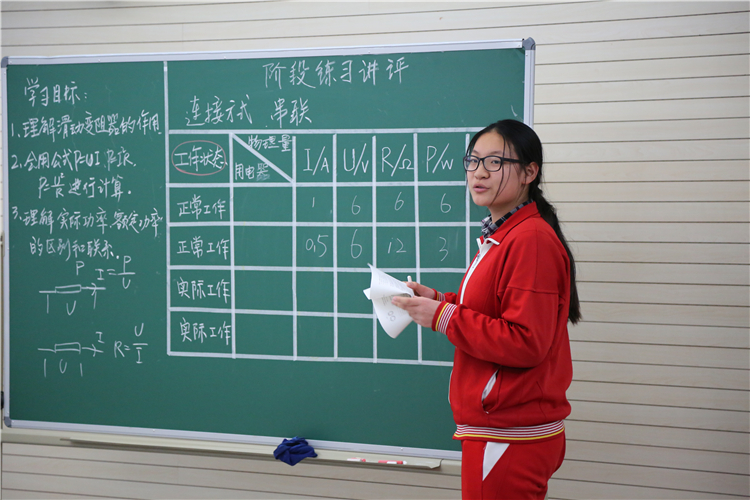 学习目标:
1.理解滑动变阻器的作用
2.会用公式P=UI P=I²R
P=U²/R 进行计算.
3.理解实际功率.额定功率
的区别和联系.
P I=P/U
U
I R=U/I
U
阶段练习讲评
连接方式 串联
工作状态 物理量 用电器 I/A U/V R/Ω P/W
正常工作 1 6 6 6
正常工作 0.5 6 12 3
实际工作
实际工作